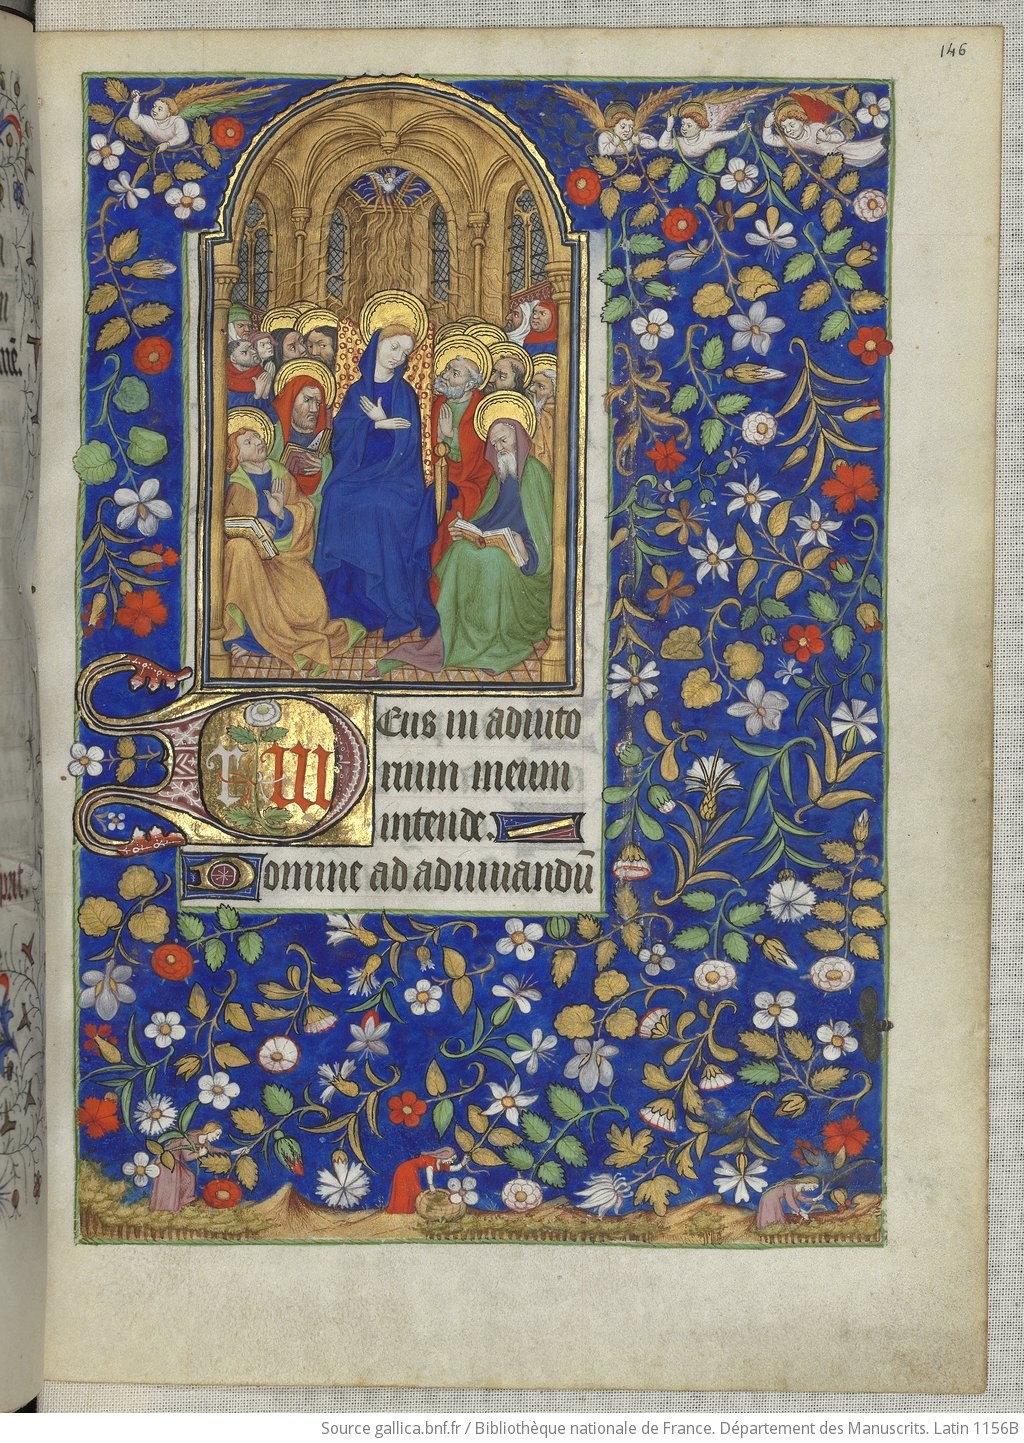 146
Deus in adiuto
rium meum
intende.
Domine ad adiuuandū
mē.
pat.
Source gallica.bnf.fr / Bibliothèque nationale de France. Département des Manuscrits. Latin 1156B